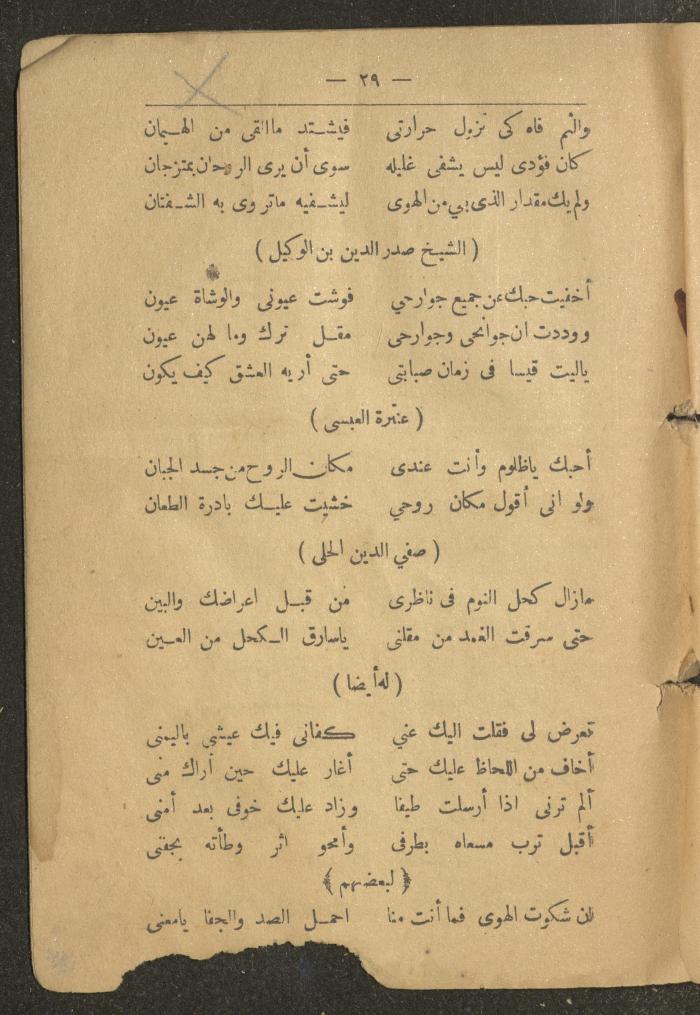 — ٢٩ —
والثم فاه كى تزول حرارتى فيشتد ماالقى من الهيمان
كان فؤدى ليس يشفى غليله سوى أن يرى الروحان يمتزجان
ولم يك مقدار الذى بي من الهوى ليشفيه ماتروى به الشفتان
( الشيخ صدر الدين بن الوكيل )
أخفيت حبك عن جميع جوارحي فوشت عيونى والوشاة عيون
ووددت ان جوانحى وجوارحى مقل ترك وما لهن عيون
ياليت قيسا فى زمان صبابتى حتى أريه العشق كيف يكون
( عنترة العبسى )
أحبك ياظلوم وأنت عندى مكان الروح من جسد الجبان
ولو انى أقول مكان روحي خشيت عليك بادرة الطعان
( صفي الدين الحلى )
مازال كحل النوم فى ناظرى من قبل اعراضك والبين
حتى سرقت الغمد من مقلتى ياسارق الكحل من العين
( له أيضا )
تعرض لى فقلت اليك عني كفانى فيك عيشى باليمنى
أخاف من اللحاظ عليك حتى أغار عليك حين أراك منى
ألم ترنى اذا أرسلت طيفا وزاد عليك خوفى بعد أمنى
أقبل ترب مسعاه بطرفى وأمحو اثر وطأته بجفنى
( لبعضهم )
لان شكوت الهوى فما أنت منا احمل الصد والجفا يامعنى